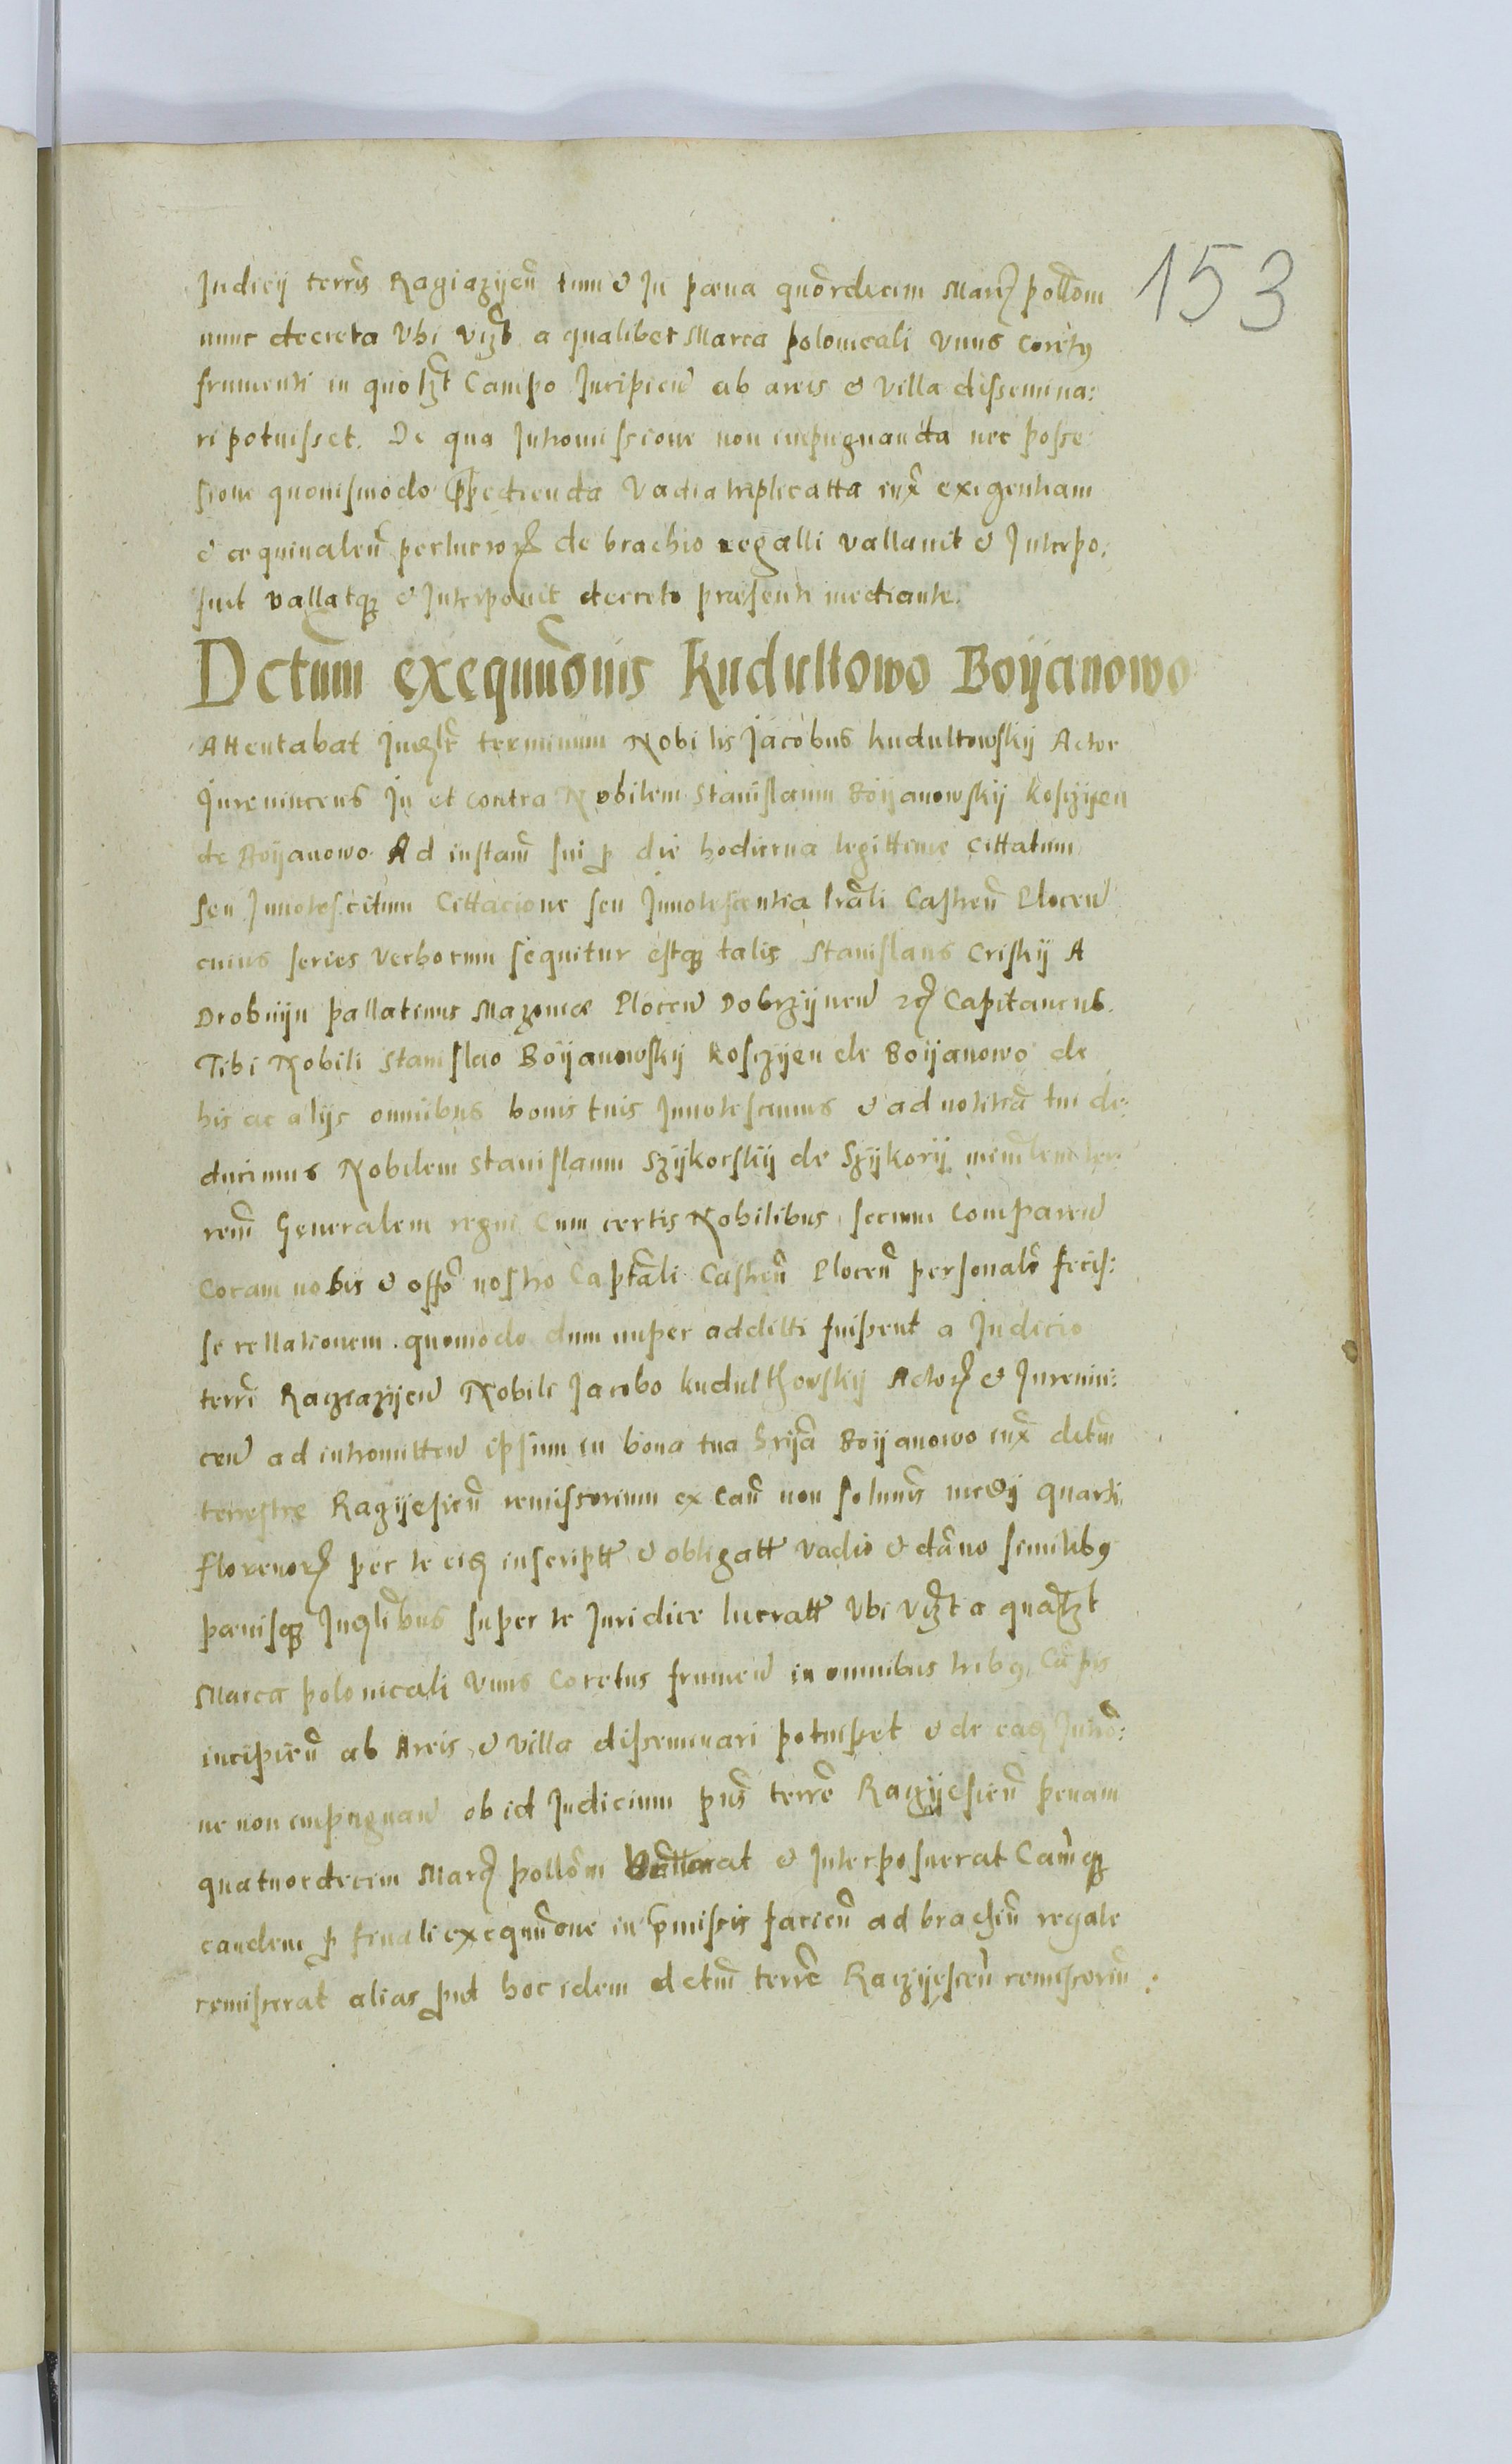 153
Judicij terrīs Ragiazijeñ tum & Ju pœna quōrdecim Marȝ pollōm
nunc decreta Vbi vizt a qualibet Marca polonicali vnus coretꝰ
frumenti in quolzt Campo Jncipieñ ab areis & villa dissemina:
ri potuisset. De qua Jntromissione non impugnanda nec posse
sione quouismodo Vadia triplicatta iux̄ exigentiam
& æquiualeñ perlucroꝝ de brachio regalli vallauit & Jnterpo:
suit vallatqꝫ & Jnterponit decreto præsenti mediante.
Dctūm exequuōnis Kudultowo Boijanowo
Attentabat terminum Nobilis Jacobus kudultowskij Actor
Jureuincens Jn et contra Nobilem Stanislaum Boijanowskij kosczijen
de Boijanowo Ad instañ sui ꝓ die hodierna legittime cittatum
seu Jnnotescitum Cittacione seu Jnnotescentia lrāli Castreñ Ploceñ
cuius series verborum sequitur estqꝫ talis Stanislaus Criskij A
Drobnijn pallatinus Mazouiæ Ploceñ Dobrzijneñ Capitaneus.
Tibi Nobili Stanislao Boijanowskij kosczijen de Boijanowo de
his ac alijs omnibus bonis tuis Jnnotescimus & ad notitiā tui de:
ducimus Nobilem Stanislaum Szijkorskij de Szijkorij
Generalem regni Cum certis Nobilibus secum compareñ
Coram nobis & offō nostro Captāli Castreñ Ploceñ personalr fecis:
se rellationem. quomodo dum nuper additi fuissent a Judicio
terrī Ragiazijeñ Nobili Jacobo kudulthowskij Actorȝ & Jureuin:
ceñ ad intromitteñ ipsum in bona tua Boijanowo iux̄ dctm̄
terrestre Ragijesieñ remissorium ex Cañ non medij quarti
florenorꝝ per te inscriptt & obligatt vadio & dāno similibꝰ
pænisqꝫ super te Juridice lucratt Vbi vizt a qualzt
Marca polonicali vnus coretus frumeñ in omnibus tribꝰ Cāpis
incipieñ ab Areis & villa disseminari potuisset & de Jntrō:
ne non impugnañ ob id Judicium terrē Ragijesieñ penam
quatuordecim Marȝ pollōm & Jnterposuerat Camqꝫ
eandem ꝓ finali exequuōne in p̄missis facieñ ad brachiū regale
remiserat alias put hoc idem dctm̄ terrē Ragijesceñ remissoriū